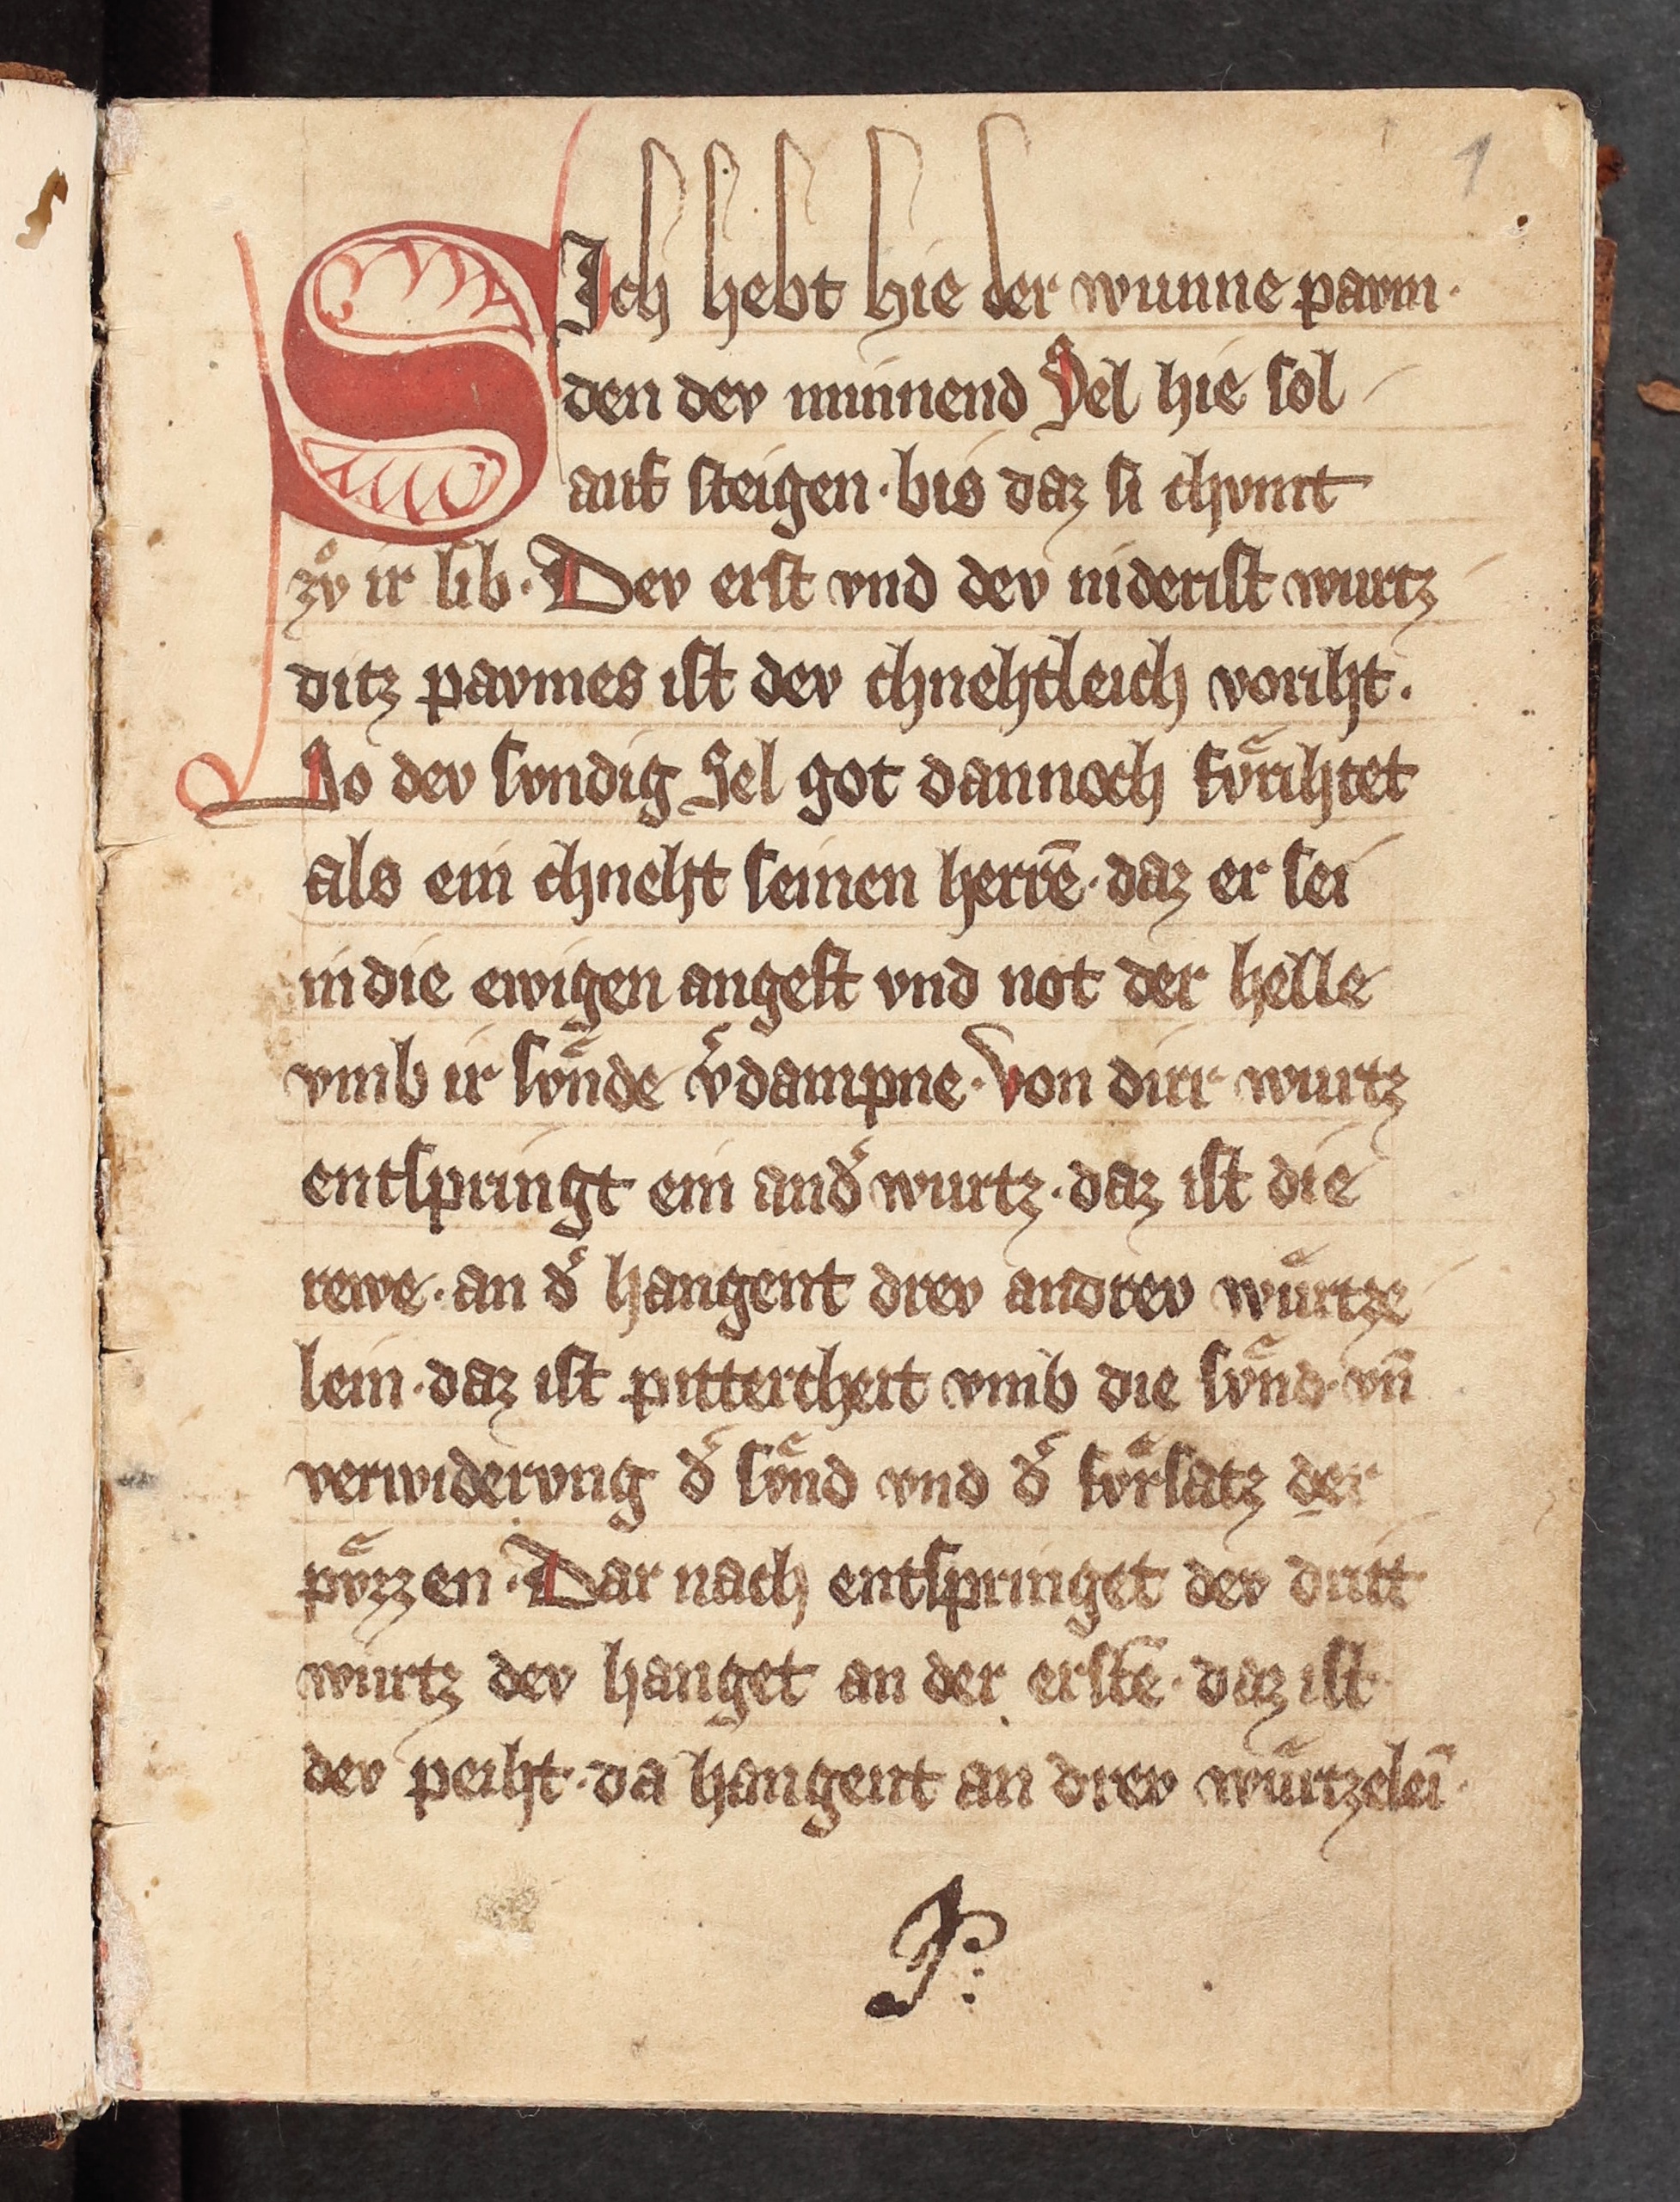 1
SIch hebt hie der wunne pavm·
den dev minnend Sel hie sol
auf steigen· bis daz si chvmt
zvͦ ir lib· Dev erst vnd dev niderist wurtz
ditz pavmes ist dev chnehtleich voriht·
So dev svndig Sel got dannoch fvͤrihtet
als ein chneht seinen herrē· daz er sei
in die ewigen angest vnd not der helle
vmb ir svͤnde v᷑dampne· Von dirr wurtz
entspringt ein and᷑ wurtz· daz ist die
rewe· an d᷑ hangent drev andrev wuͤrtze
lein· daz ist pitterchert vmb die svͤnd· vn̄
verwidervng d᷑ svͤnd vnd d᷑ fvͤrsatz der
pvͤzzen· Dar nach entspringet dev dritt
wurtz dev hanget an der erstē· daz ist
dev peiht· da hangent an drev wuͤrtzelei̅·